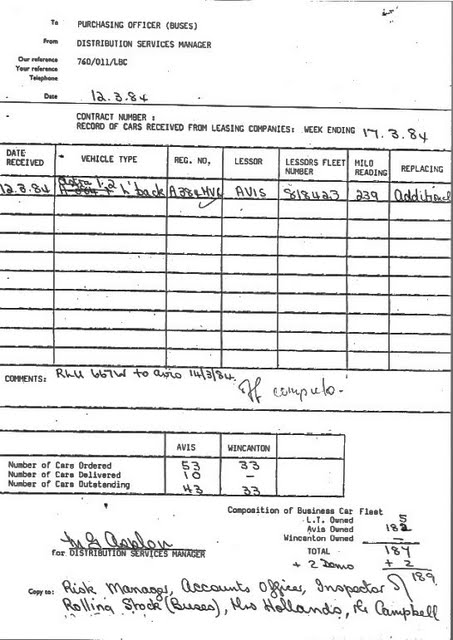 To PURCHASING OFFICER (BUSES)
From DISTRIBUTION SERVICES MANAGER
Our reference 760/011/LBC
Your reference
Telephone
Date 12.3.84
CONTRACT NUMBER :
RECORD OF CARS RECEIVED FROM LEASING COMPANIES: WEEK ENDING 17.3.84
DATE RECEIVED VEHICLE TYPE REG. NO, LESSOR LESSORS FLEET NUMBER MILO READING REPLACING
12.3.84 1.2 h'back AVIS 818423 239 Additional
COMMENTS: to avis 14/3/84.
AVIS WINCANTON
Number of Cars Ordered 53 33
Number of Cars Delivered 10 -
Number of Cars Outstanding 43 33
Composition of Business Car Fleet
L.T. Owned 5
Avis Owned 182
Wincanton Owned -
TOTAL 187
+ 2 Demo + 2
189
for DISTRIBUTION SERVICES MANAGER
Copy to: Risk Manager, Accounts Officer, Inspector of
Rolling Stock (Buses), Mrs Hollands, Mr Campbell